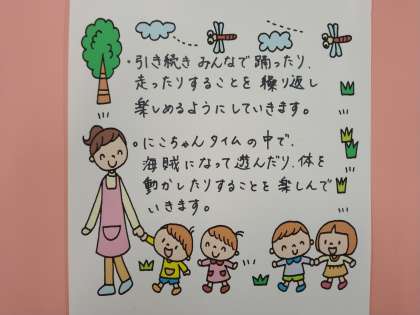 ・引き続き みんなで 踊ったり、
走ったりすることを 繰り返し
楽しめるようにしていきます。
・にこちゃんタイムの中で、
海賊になって遊んだり、体を
動かしたりすることを 楽しんで
いきます。